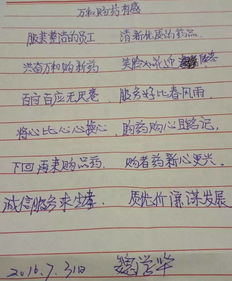 万和购药有感
服装整洁的员工 清新优质的药品
万和购新药 笑脸
百应百应无厌卷 服务好比春风雨
将心比心心换心 购药购心且路记
下回再来购品药 购者药新心更兴
诚信服务求生存 质优价谋发展
2016.7.31日